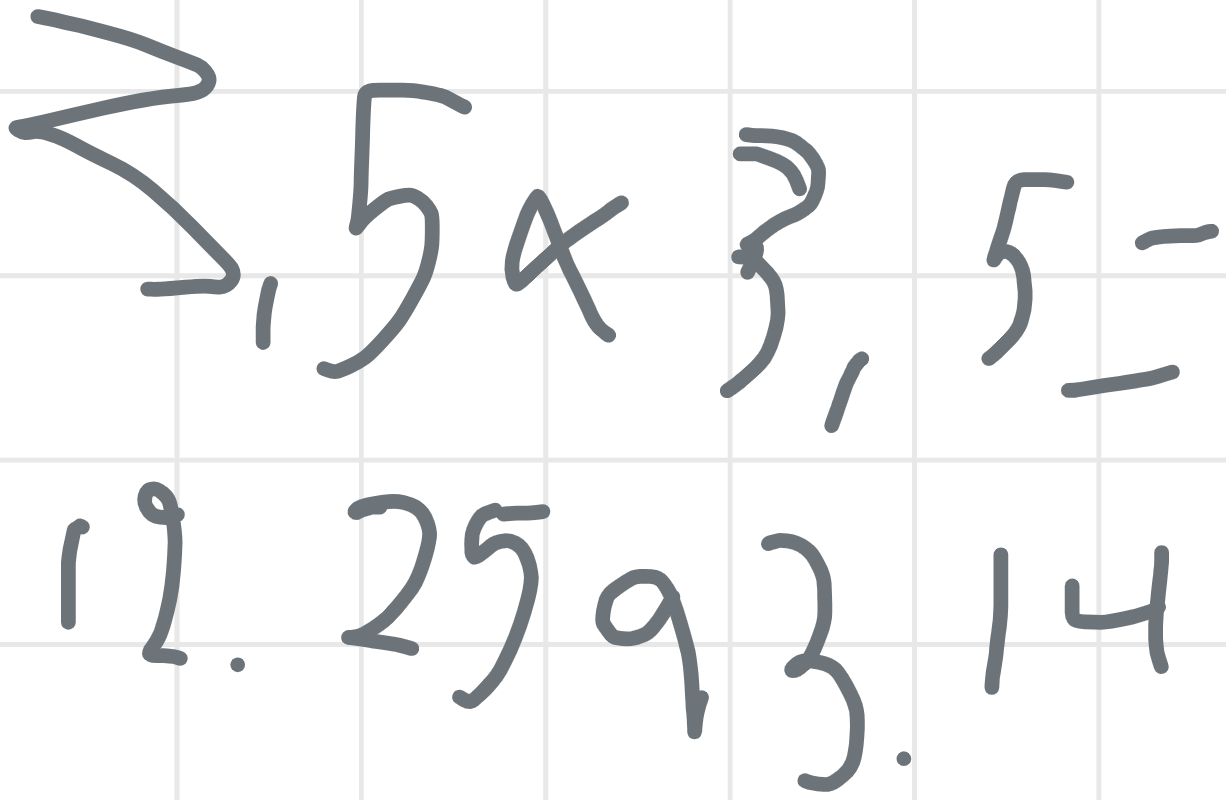 3,5x3,5=
12.2593.14